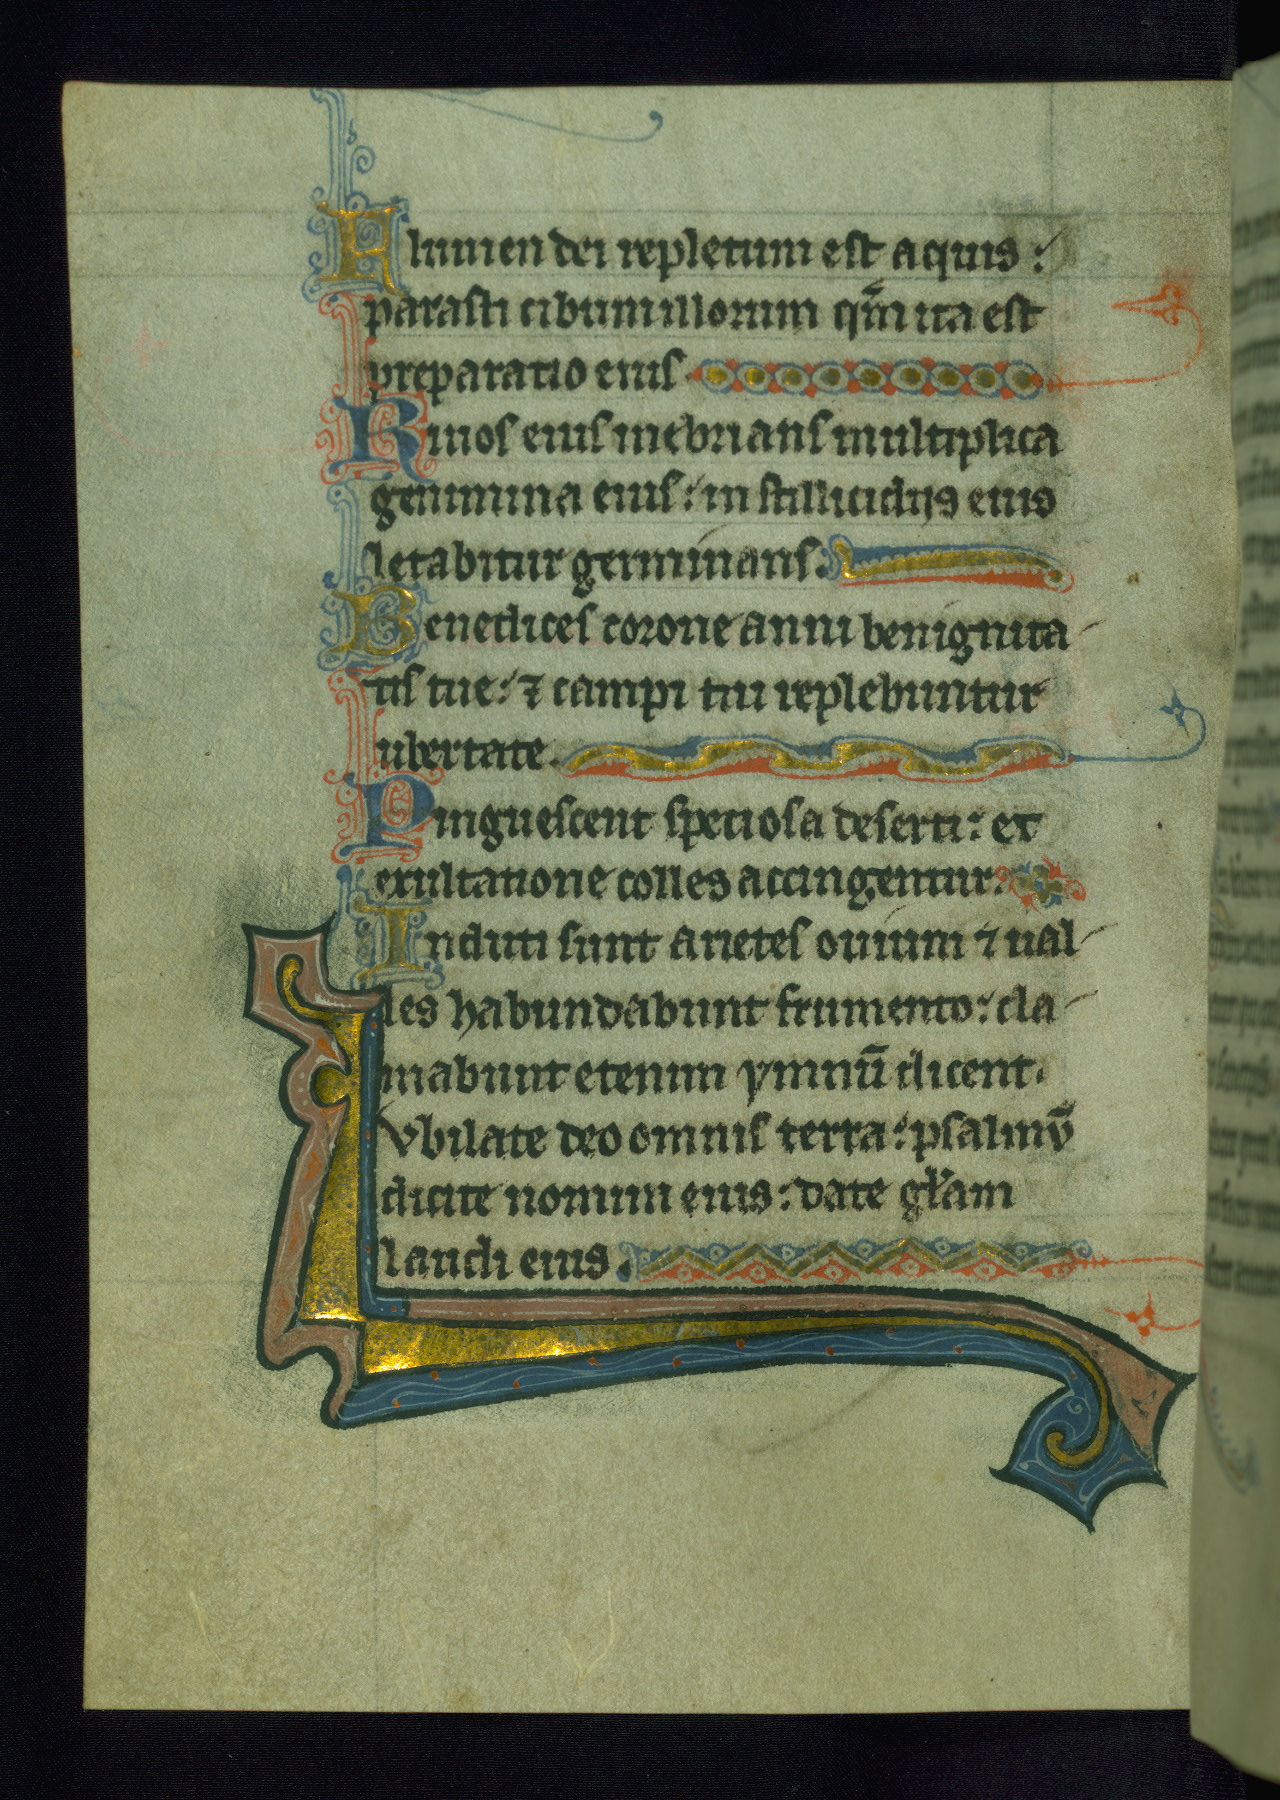 Flumen dei repletum est aquis:
parasti cibum illorum qm̄ ita est
preparatio eius
Riuos eius inebrians multiplica
genimina eius: in stillicidijs eius
letabitur germinans.
Benedices corone anni benignita
tis tue: ⁊ campi tui replebuntur
ubertate.
Pinguescent speciosa deserti: et
exultatione colles accingentur.
Induti sunt arietes ouium ⁊ ual
les habundabunt frumento: cla
mabunt etenim ymnū dicent.
Ivbilate deo omnis terra: psalmū
dicite nomini eius: date gl̄am
laudi eius.